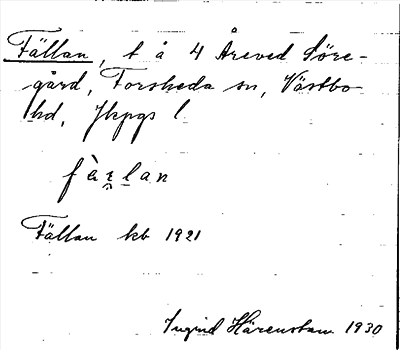 Fällan, t å 4 Åreved Söre-
gård, Forsheda sn, Västbo
hd, Jkpgs l
Fällan kb 1921
Ingrid Härenstam 1930